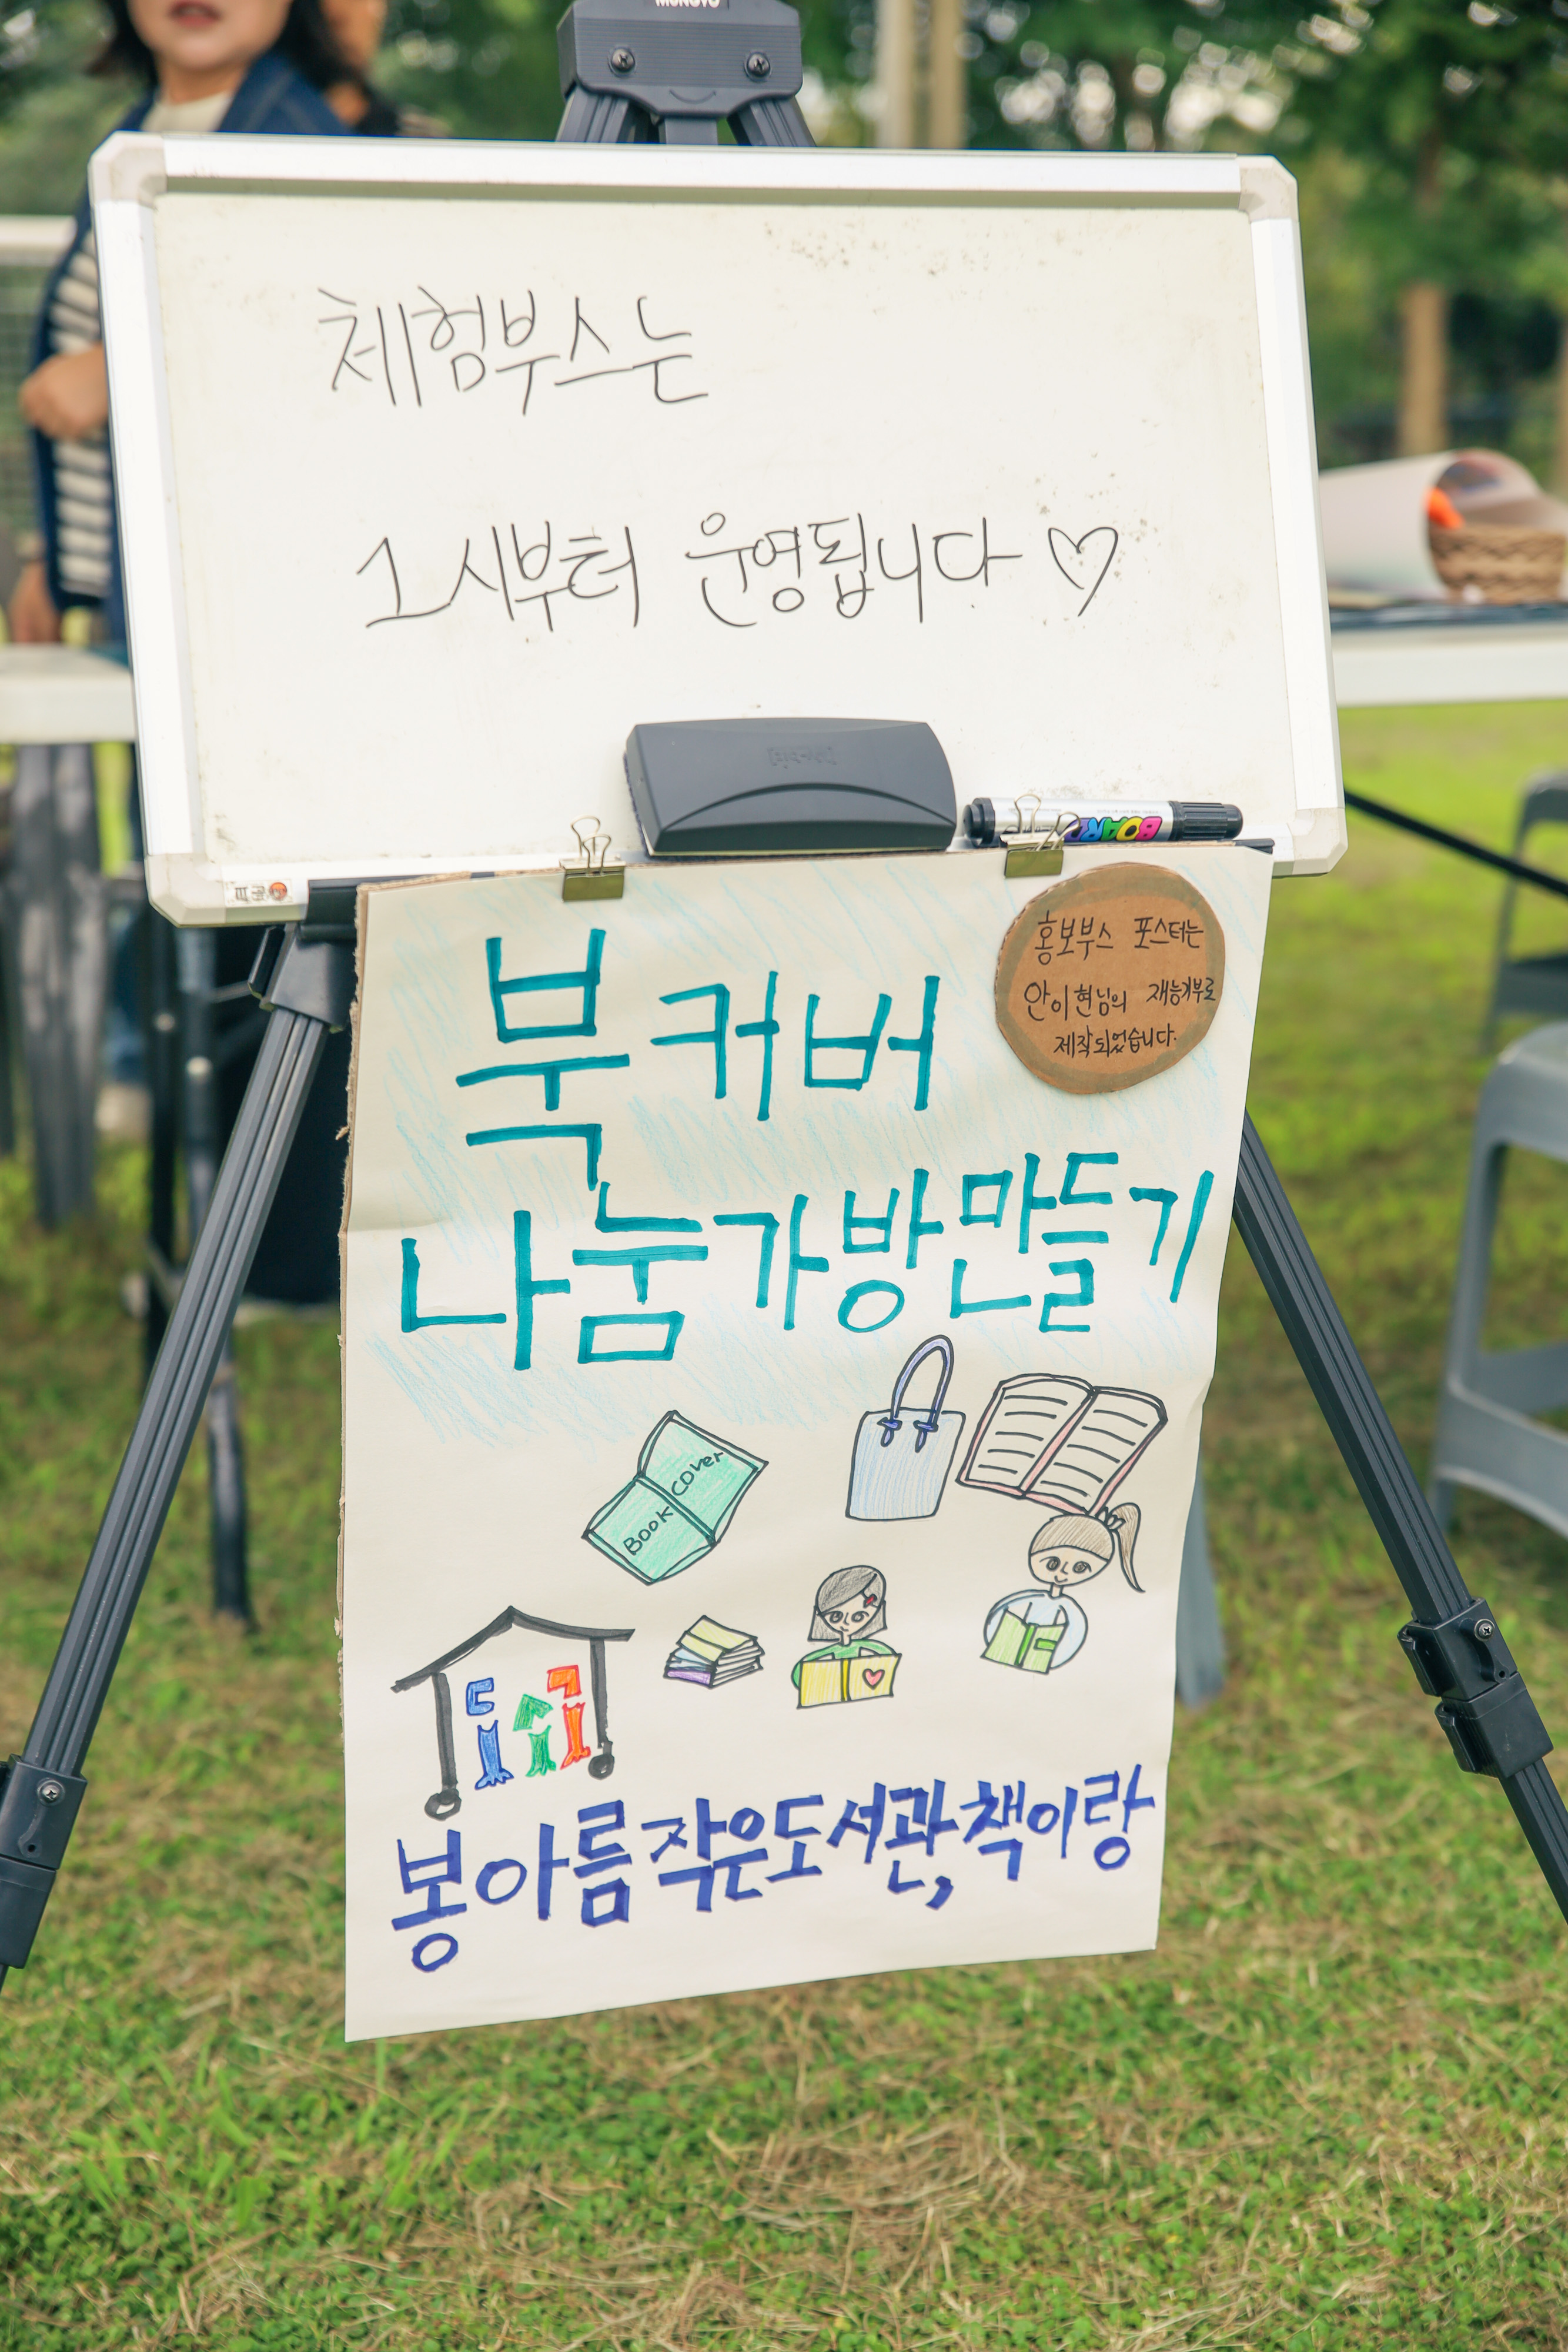 MUNGYO
체험부스는
1시부터 운영됩니다 ♡
BOARD
북커버
나눔가방만들기
홍보부스 포스터는
안이현님의 재능기부로
제작되었습니다.
Book Cover
봉아름작은도서관, 책이랑